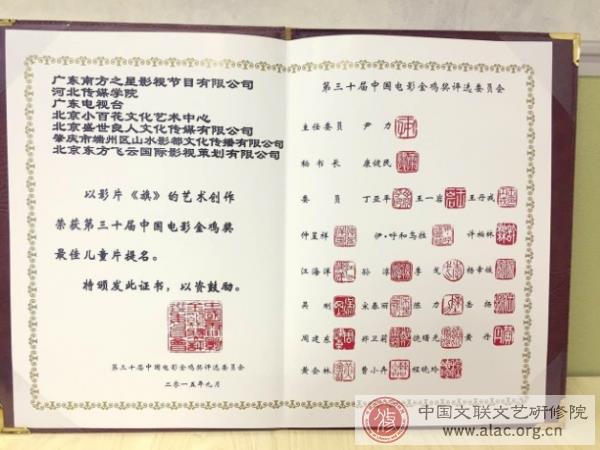 广东南方之星影视节目有限公司
河北传媒学院
广东电视台
北京小百花文化艺术中心
北京盛世良人文化传媒有限公司
肇庆市端州区山水影都文化传播有限公司
北京东方飞云国际影视策划有限公司
以影片《旗》的艺术创作
荣获第三十届中国电影金鸡奖
最佳儿童片提名。
特颁发此证书，以资鼓励。
第三十届中国电影金鸡奖评选委员会
二〇一五年九月
第三十届中国电影金鸡奖评选委员会
主任委员 尹力
秘书长 康健民
委员 丁亚平 王一岩 王丹戎
仲呈祥 伊·呼和乌拉 许柏林
江海洋 孙淳 李 杨幸媛
吴刚 宋春丽 陈力 岳扬
周建东 郑卫莉 饶曙光 黄丹
黄会林 曹小卉 程晓玲
中国文联文艺研修院
www.alac.org.cn